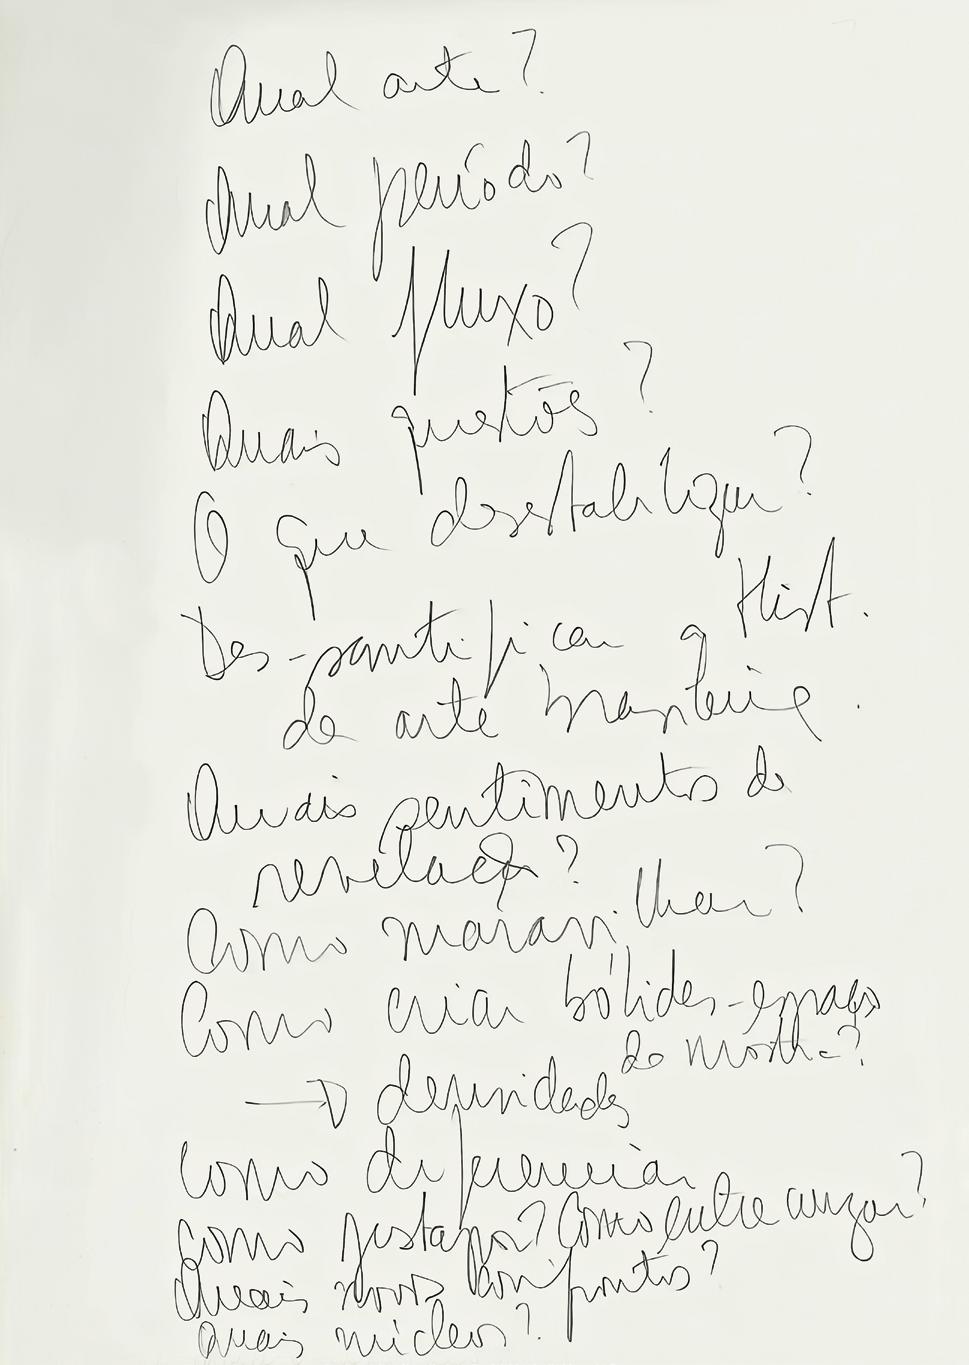 Qual arte?
Qual período?
Qual fluxo?
Quais questões?
O que desestabilizar?
Des-santificar a Hist.
da arte brasileira.
Quais sentimentos de
revelação?
Como maravilhar?
Como criar bólides-espaço
da mostra?
→ densidades
Como diferenciar
como justapor? Como entrecruzar?
Quais novos confrontos?
Quais núcleos?